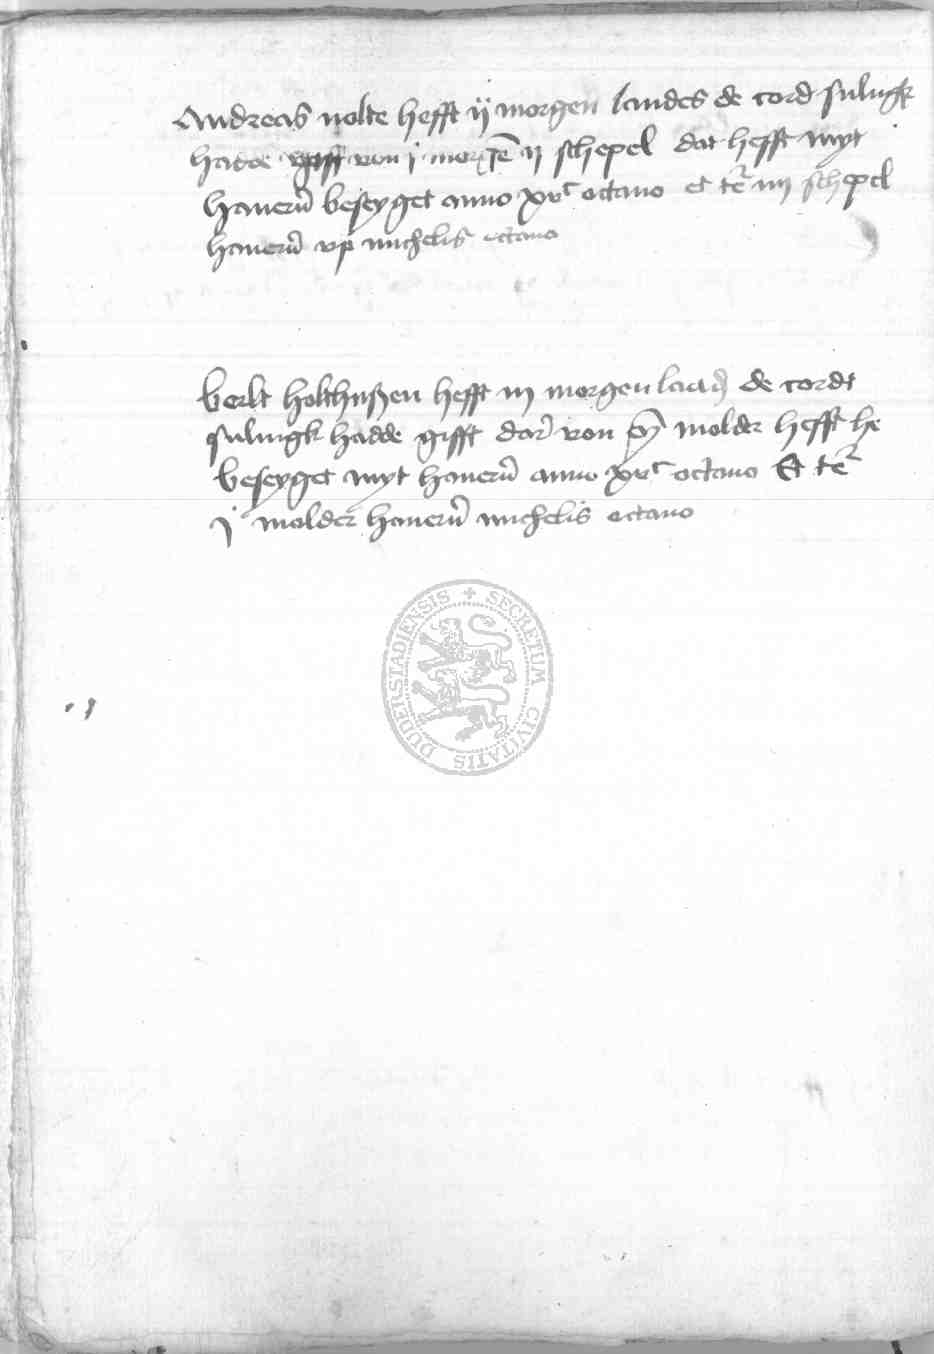 Andreas nolte hefft ij morgen landes de cord sulingk
hadde gifft von j morgen ij schepel dat hefft myt
haueren beseyget anno xvc octauo et tenetur iiij schepel
haueren vp michelis octauo
Berlt holthußen hefft iij morgen landes de cordt
sulingk hadde gifft dar von molder hefft he
beseyget myt haueren anno xvc octauo Et tenetur
j molder haueren michelis octauo
SECRETUM CIVITATIS DUDERSTADIENSIS